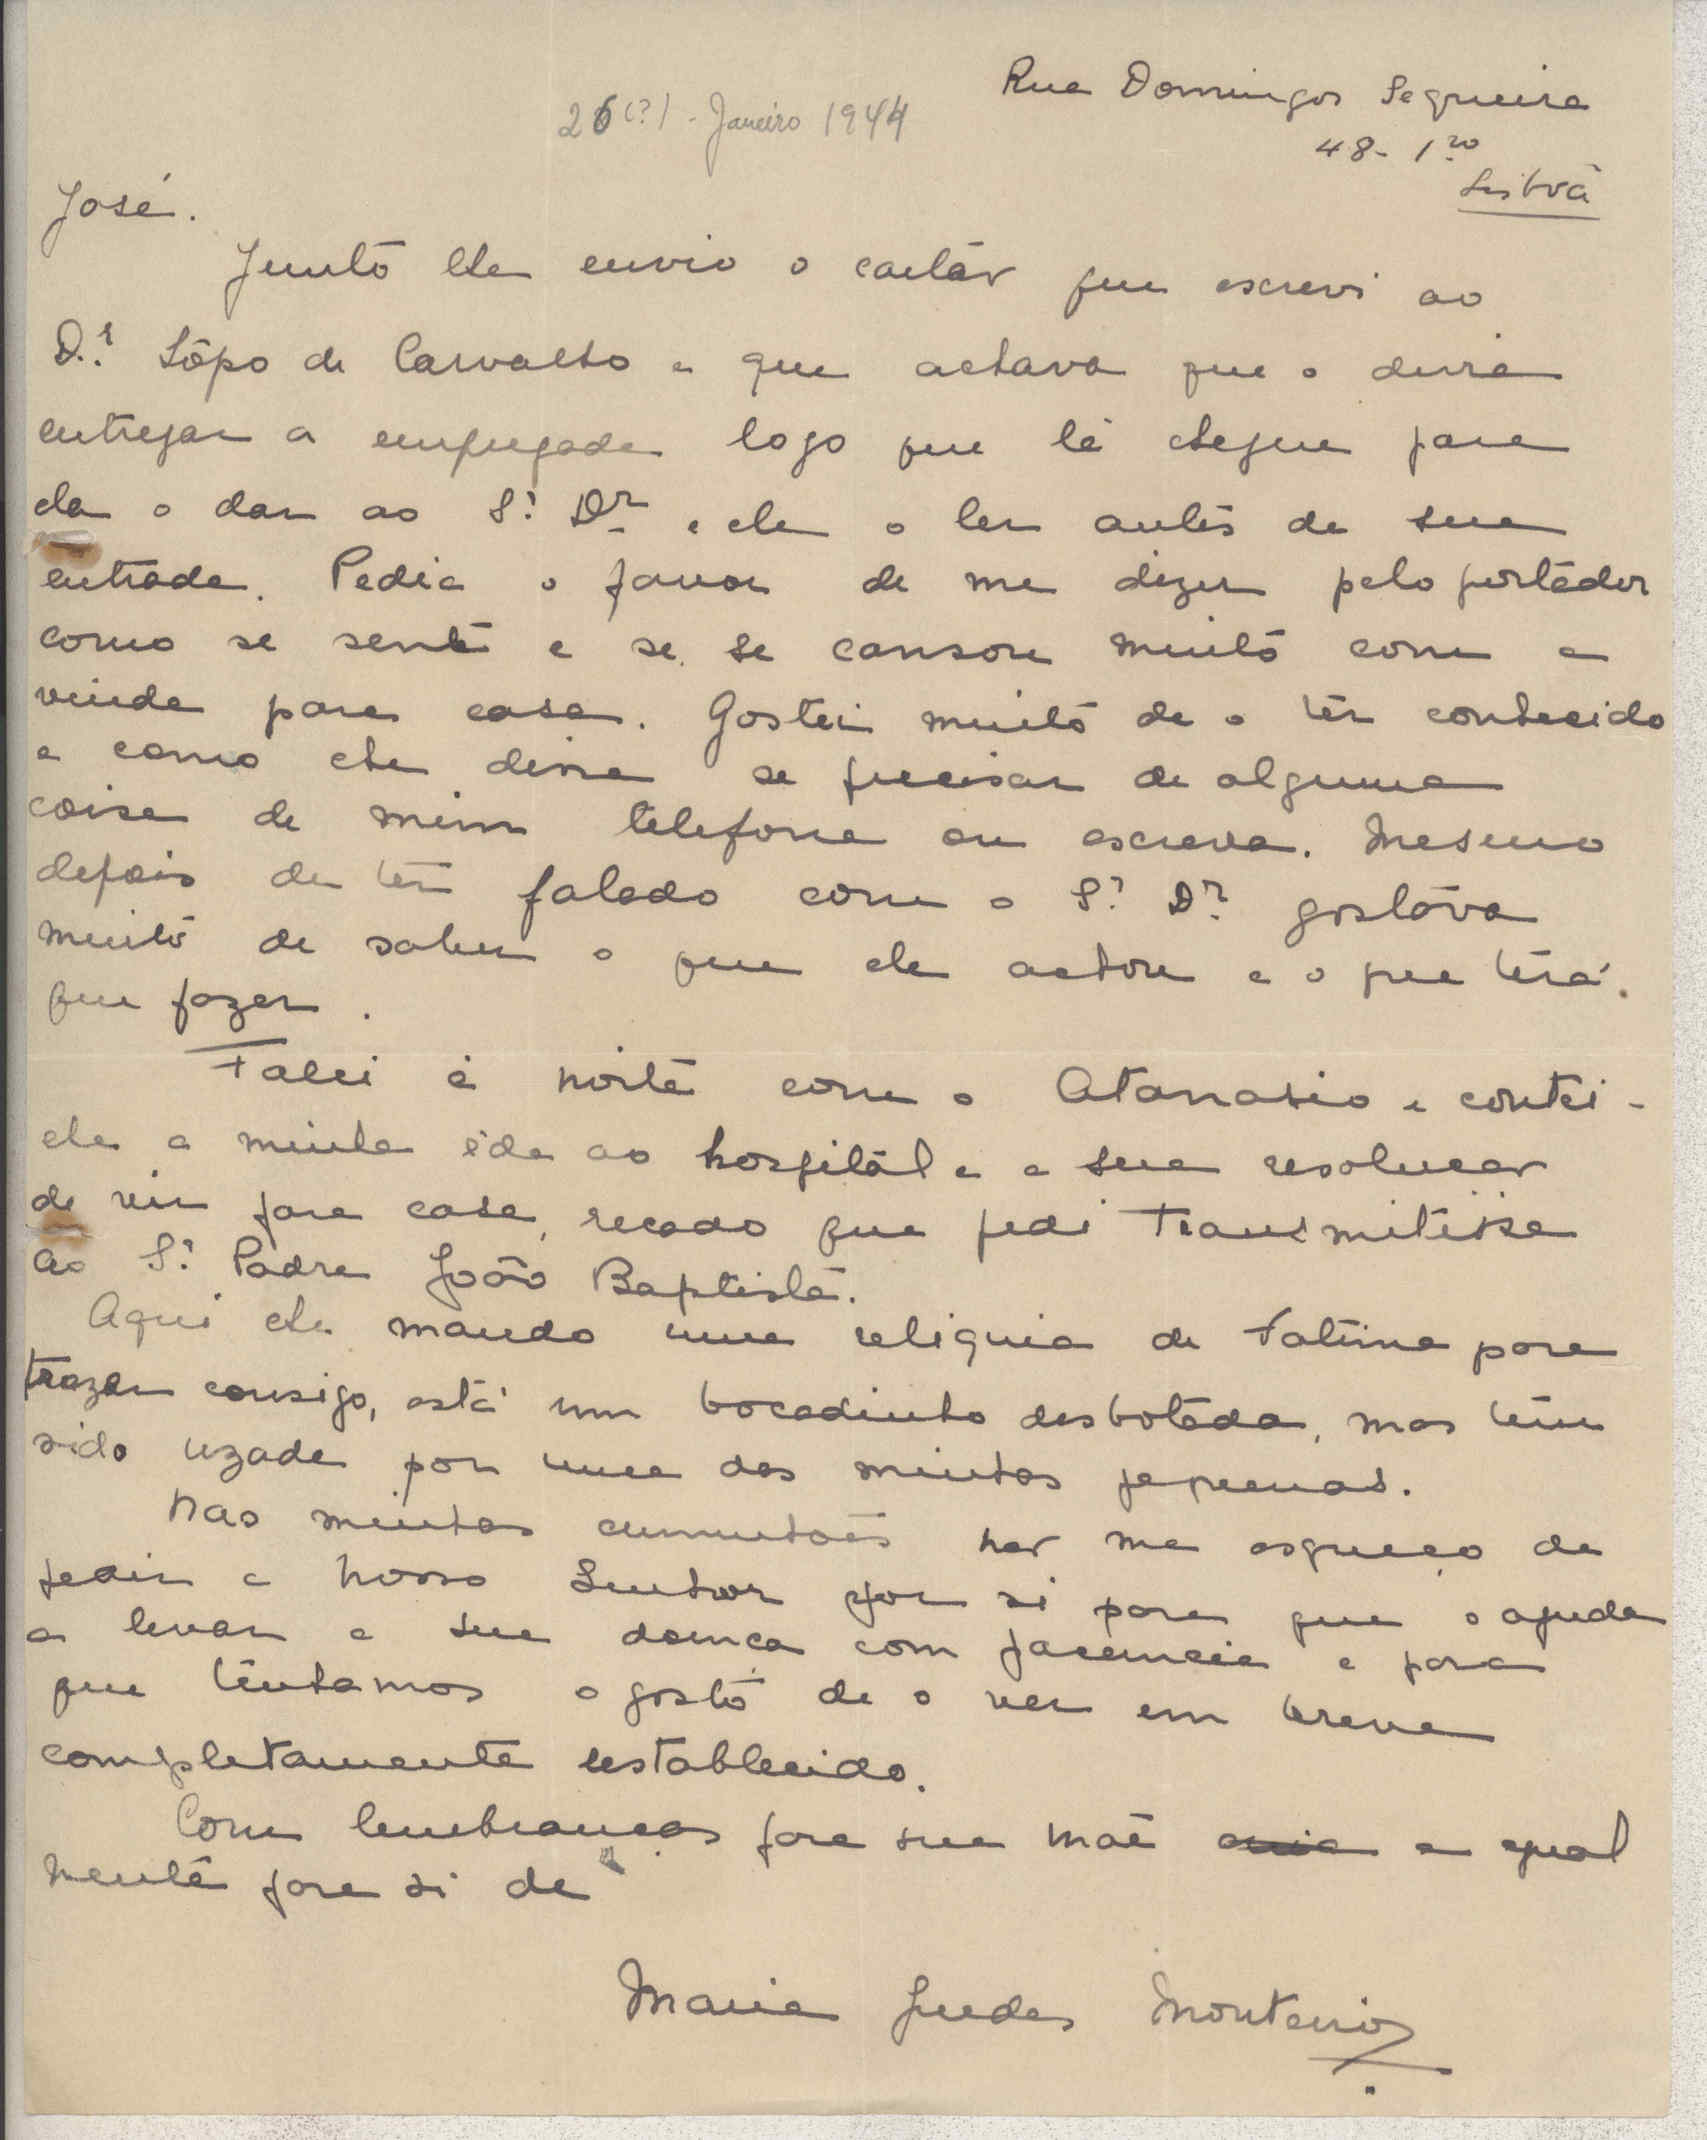 Rua Domingos Sequeira
26(?) - Janeiro 1944
48 - 1ro
Lisboa
José.
Junto lhe envio o cartão que escrevi ao
D.r Lôpo de Carvalho e que achava que o devia
entregar a empregada logo que lá chegue para
ela o dar ao S.r Dr e ele o ler antes de sua
entrada. Pedia o favor de me dizer pelo portador
como se sente e se se cansou muito com a
vinda para casa. Gostei muito de o ter conhecido
e como lhe disse se precisar de alguma
coisa de mim telefone ou escreva. Mesmo
depois de ter falado com o S.r Dr gostava
muito de saber o que ele achou e o que terá
que fazer.
Falei á noite com o Atanasio e contei-
lhe a minha ida ao hospital e a sua resolucão
de vir para casa, recado que pedi transmitisse
ao S.r Padre João Baptista.
Aqui lhe mando uma reliquia de Fatima para
trazer consigo, está um bocadinho desbotada, mas tem
sido uzada por uma das minhas pequenas.
Nas minhas cumunhões não me esqueço de
pedir a Nosso Senhor por si para que o ajude
a levar a sua doença com paciencia e para
que tenhamos o gosto de o ver em breve
completamente restablecido.
Com lembranças para sua Mãe e egual
mente para si de
Maria Guedes Monteiro